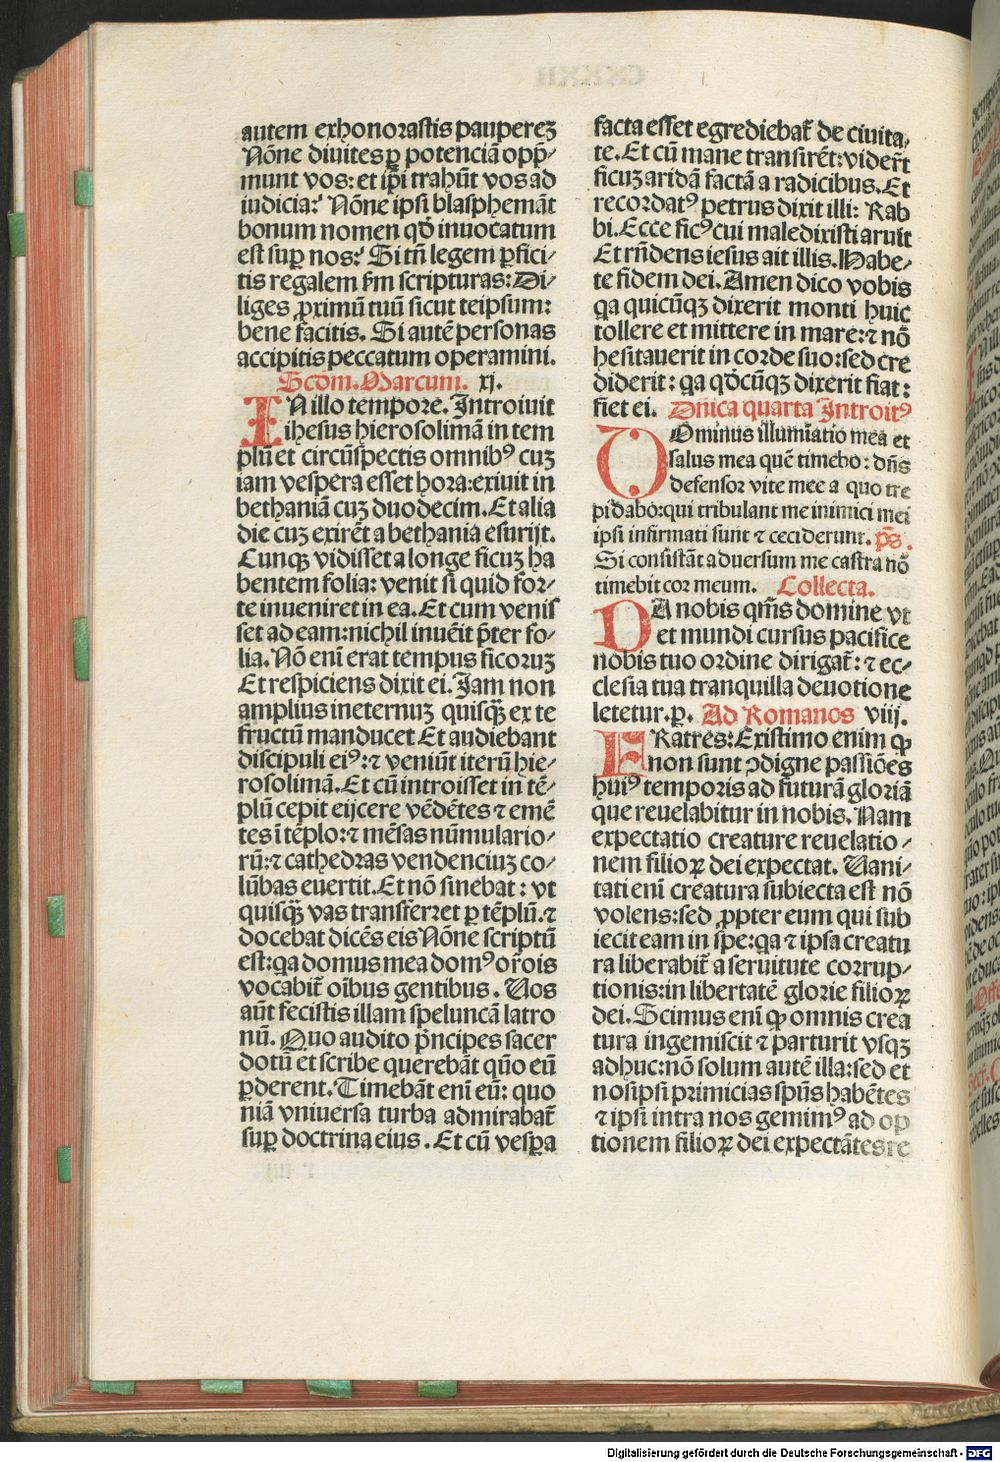 autem exhonorastis paupereꝫ
Nõne diuites ꝑ potenciã opp̃-
munt vos: et ip̃i trahũt vos ad
iudicia? Nõne ipsi blasphemãt
bonum nomen qđ inuocatum
est suꝑ nos? Si tñ legem ꝑfici-
tis regalem ẜm scripturas: Di-
liges ꝓximũ tuũ sicut teipsum:
bene facitis. Si autẽ personas
accipitis peccatum operamini.
Scđm. Marcum. xj.
IN illo tempore. Introiuit
ihesus hierosolimã in tem
plũ et circũspectis omnibꝰ cuꝫ
iam vespera esset hora: exiuit in
bethaniã cuꝫ duodecim. Et alia
die cuꝫ exirẽt a bethania esurijt.
Cunqꝫ vidisset a longe ficuꝫ ha
bentem folia: venit si quid for-
te inueniret in ea. Et cum venis
set ad eam: nichil inuẽit p̃ter fo-
lia. Nõ eni erat tempus ficoruꝫ
Et respiciens dixit ei. Jam non
amplius ineternuꝫ quisqꝫ ex te
fructũ manducet Et audiebant
discipuli eiꝰ: ⁊ veniũt iterũ hie-
rosolimã. Et cũ introisset in tẽ-
plũ cepit eijcere vẽdẽtes ⁊ emẽ
tes ĩ tẽplo: ⁊ mẽsas nũmulario-
rũ: ⁊ cathedras vendenciuꝫ co-
lũbas euertit. Et nõ sinebat: vt
quisqꝫ vas transferret ꝑ tẽplũ. ⁊
docebat dicẽs eis Nõne scriptũ
est: qa domus mea domꝰ or̃ois
vocabit̃ oĩbus gentibus. Vos
aũt fecistis illam speluncã latro
nũ. Quo audito p̃ncipes sacer
dotũ et scribe querebãt quõ eũ
ꝑderent. Timebãt eni eũ: quo
niã vniuersa turba admirabat̃
suꝑ doctrina eius. Et cũ vesꝑa
facta esset egrediebat̃ de ciuita-
te. Et cũ mane transirẽt: vider̃t
ficuꝫ aridã factã a radicibus. Et
recordatꝰ petrus dixit illi: Rab
bi. Ecce ficꝰ cui maledixisti aruit
Et rñdens iesus ait illis. Habe-
te fidem dei. Amen dico vobis
qa quicũqꝫ dixerit monti huic
tollere et mittere in mare: ⁊ nõ
hesitauerit in corde suo: sed cre
diderit: qa qđcũqꝫ dixerit fiat:
fiet ei. Dñica quarta Introitꝰ
Dominus illumĩatio mea et
salus mea quẽ timebo: dñs
defensor vite mee a quo tre
pidabo: qui tribulant me inimici mei
ipsi infirmati sunt ⁊ ceciderunt. p̃s.
Si consistãt aduersum me castra nõ
timebit cor meum. Collecta.
DA nobis qm̃s domine vt
et mundi cursus pacifice
nobis tuo ordine dirigat̃: ⁊ ec-
clesia tua tranquilla deuotione
letetur. ꝑ. Ad Romanos viij.
FRatres: Existimo enim ꝙ
non sunt ↄdigne passiões
huiꝰ temporis ad futurã gloriã
que reuelabitur in nobis. Nam
expectatio creature reuelatio-
nem filioꝝ dei expectat. Vani-
tati eni creatura subiecta est nõ
volens: sed ꝓpter eum qui sub
iecit eam in spe: qa ⁊ ipsa creatu
ra liberabit̃ a seruitute corrup-
tionis: in libertatẽ glorie filioꝝ
dei. Scimus eni ꝙ omnis crea
tura ingemiscit ⁊ parturit vsqꝫ
adhuc: nõ solum autẽ illa: sed et
nosipsi primicias spũs habẽtes
⁊ ipsi intra nos gemimꝰ ad op
tionem filioꝝ dei expectãtes re
Digitalisierung gefördert durch die Deutsche Forschungsgemeinschaft - DFG